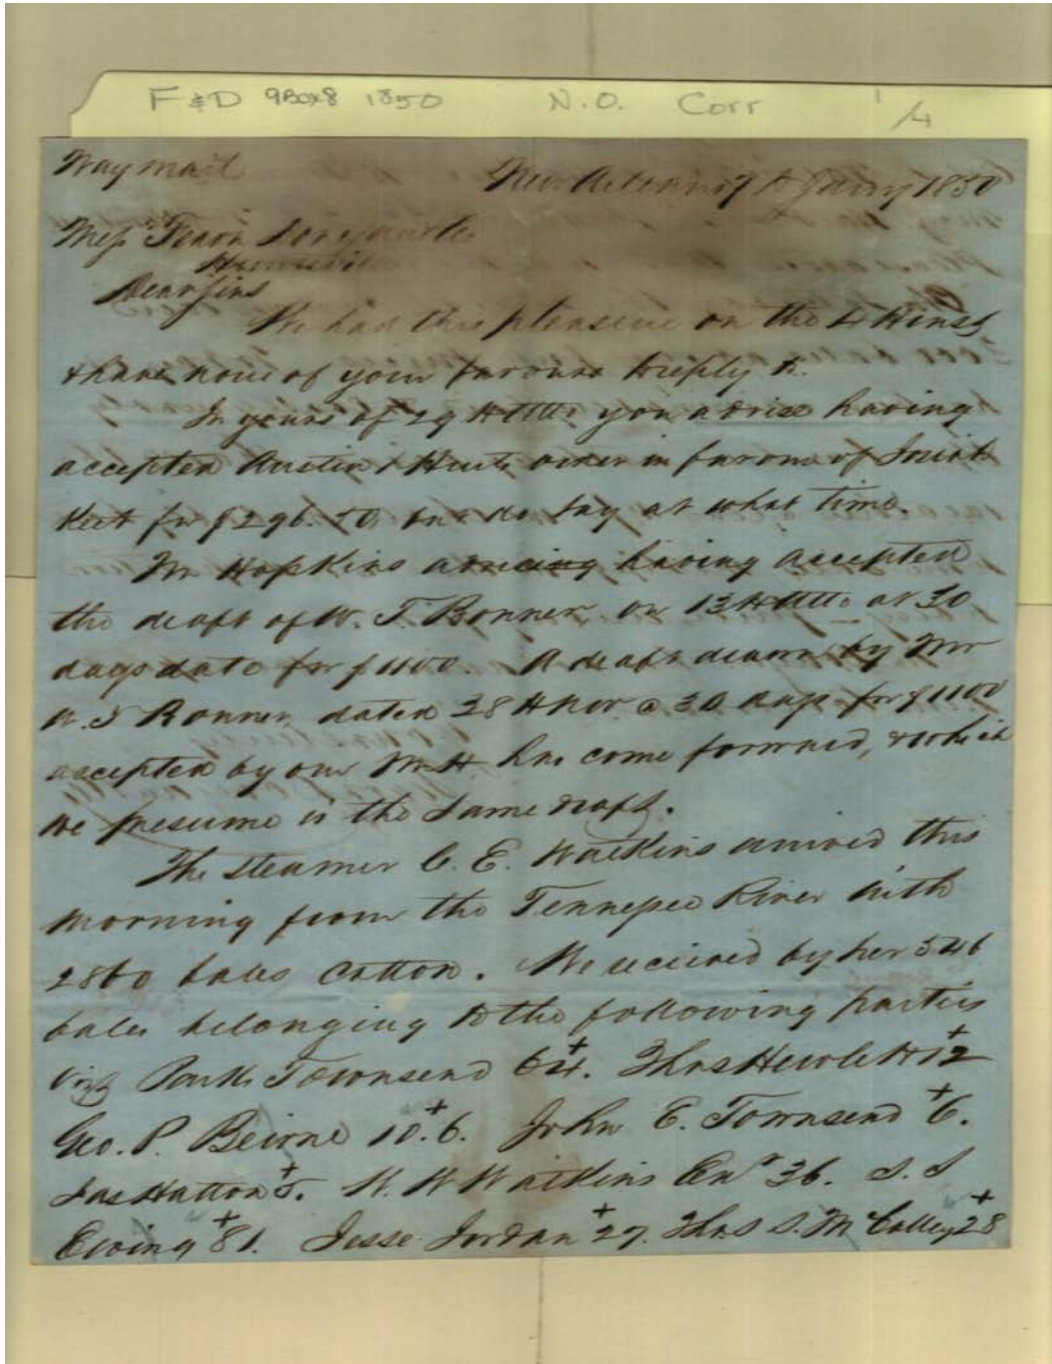 F & D 9Box8 1850 N.O. Corr 1/4
Way mail New Orleans 7th Jan'y 1850
Mess Fearn Donegan & Co
Huntsville
Dear Sirs
We had this pleasure on the 4th inst
& have none of your favours to reply to.
In yours of 29th ulto you advise having
accepted Austin & order in favour of
for $296.50 but do say at what time.
Mr Hopkins advising having accepted
the draft of W. T. Bonner on 13th ulto at 30
days date for $1100. A draft drawn by Mr
W. T Bonner dated 28th Nov @ 30 days for $1100
accepted by our Mr H has come forward, & which
we presume is the same draft.
The steamer C. E. Watkins arrived this
morning from the Tennessee River with
2860 bales Cotton. We received by her 546
bales belonging to the following parties
viz Parks Townsend 64. Thos Hewlett 12
Geo. P. Beirne 106. John E. Townsend 6.
Jas Hatton 5. W. W Watkins 36. S. S
Ewing 81. Jesse Jordan 27. Thos S. McCalley 28